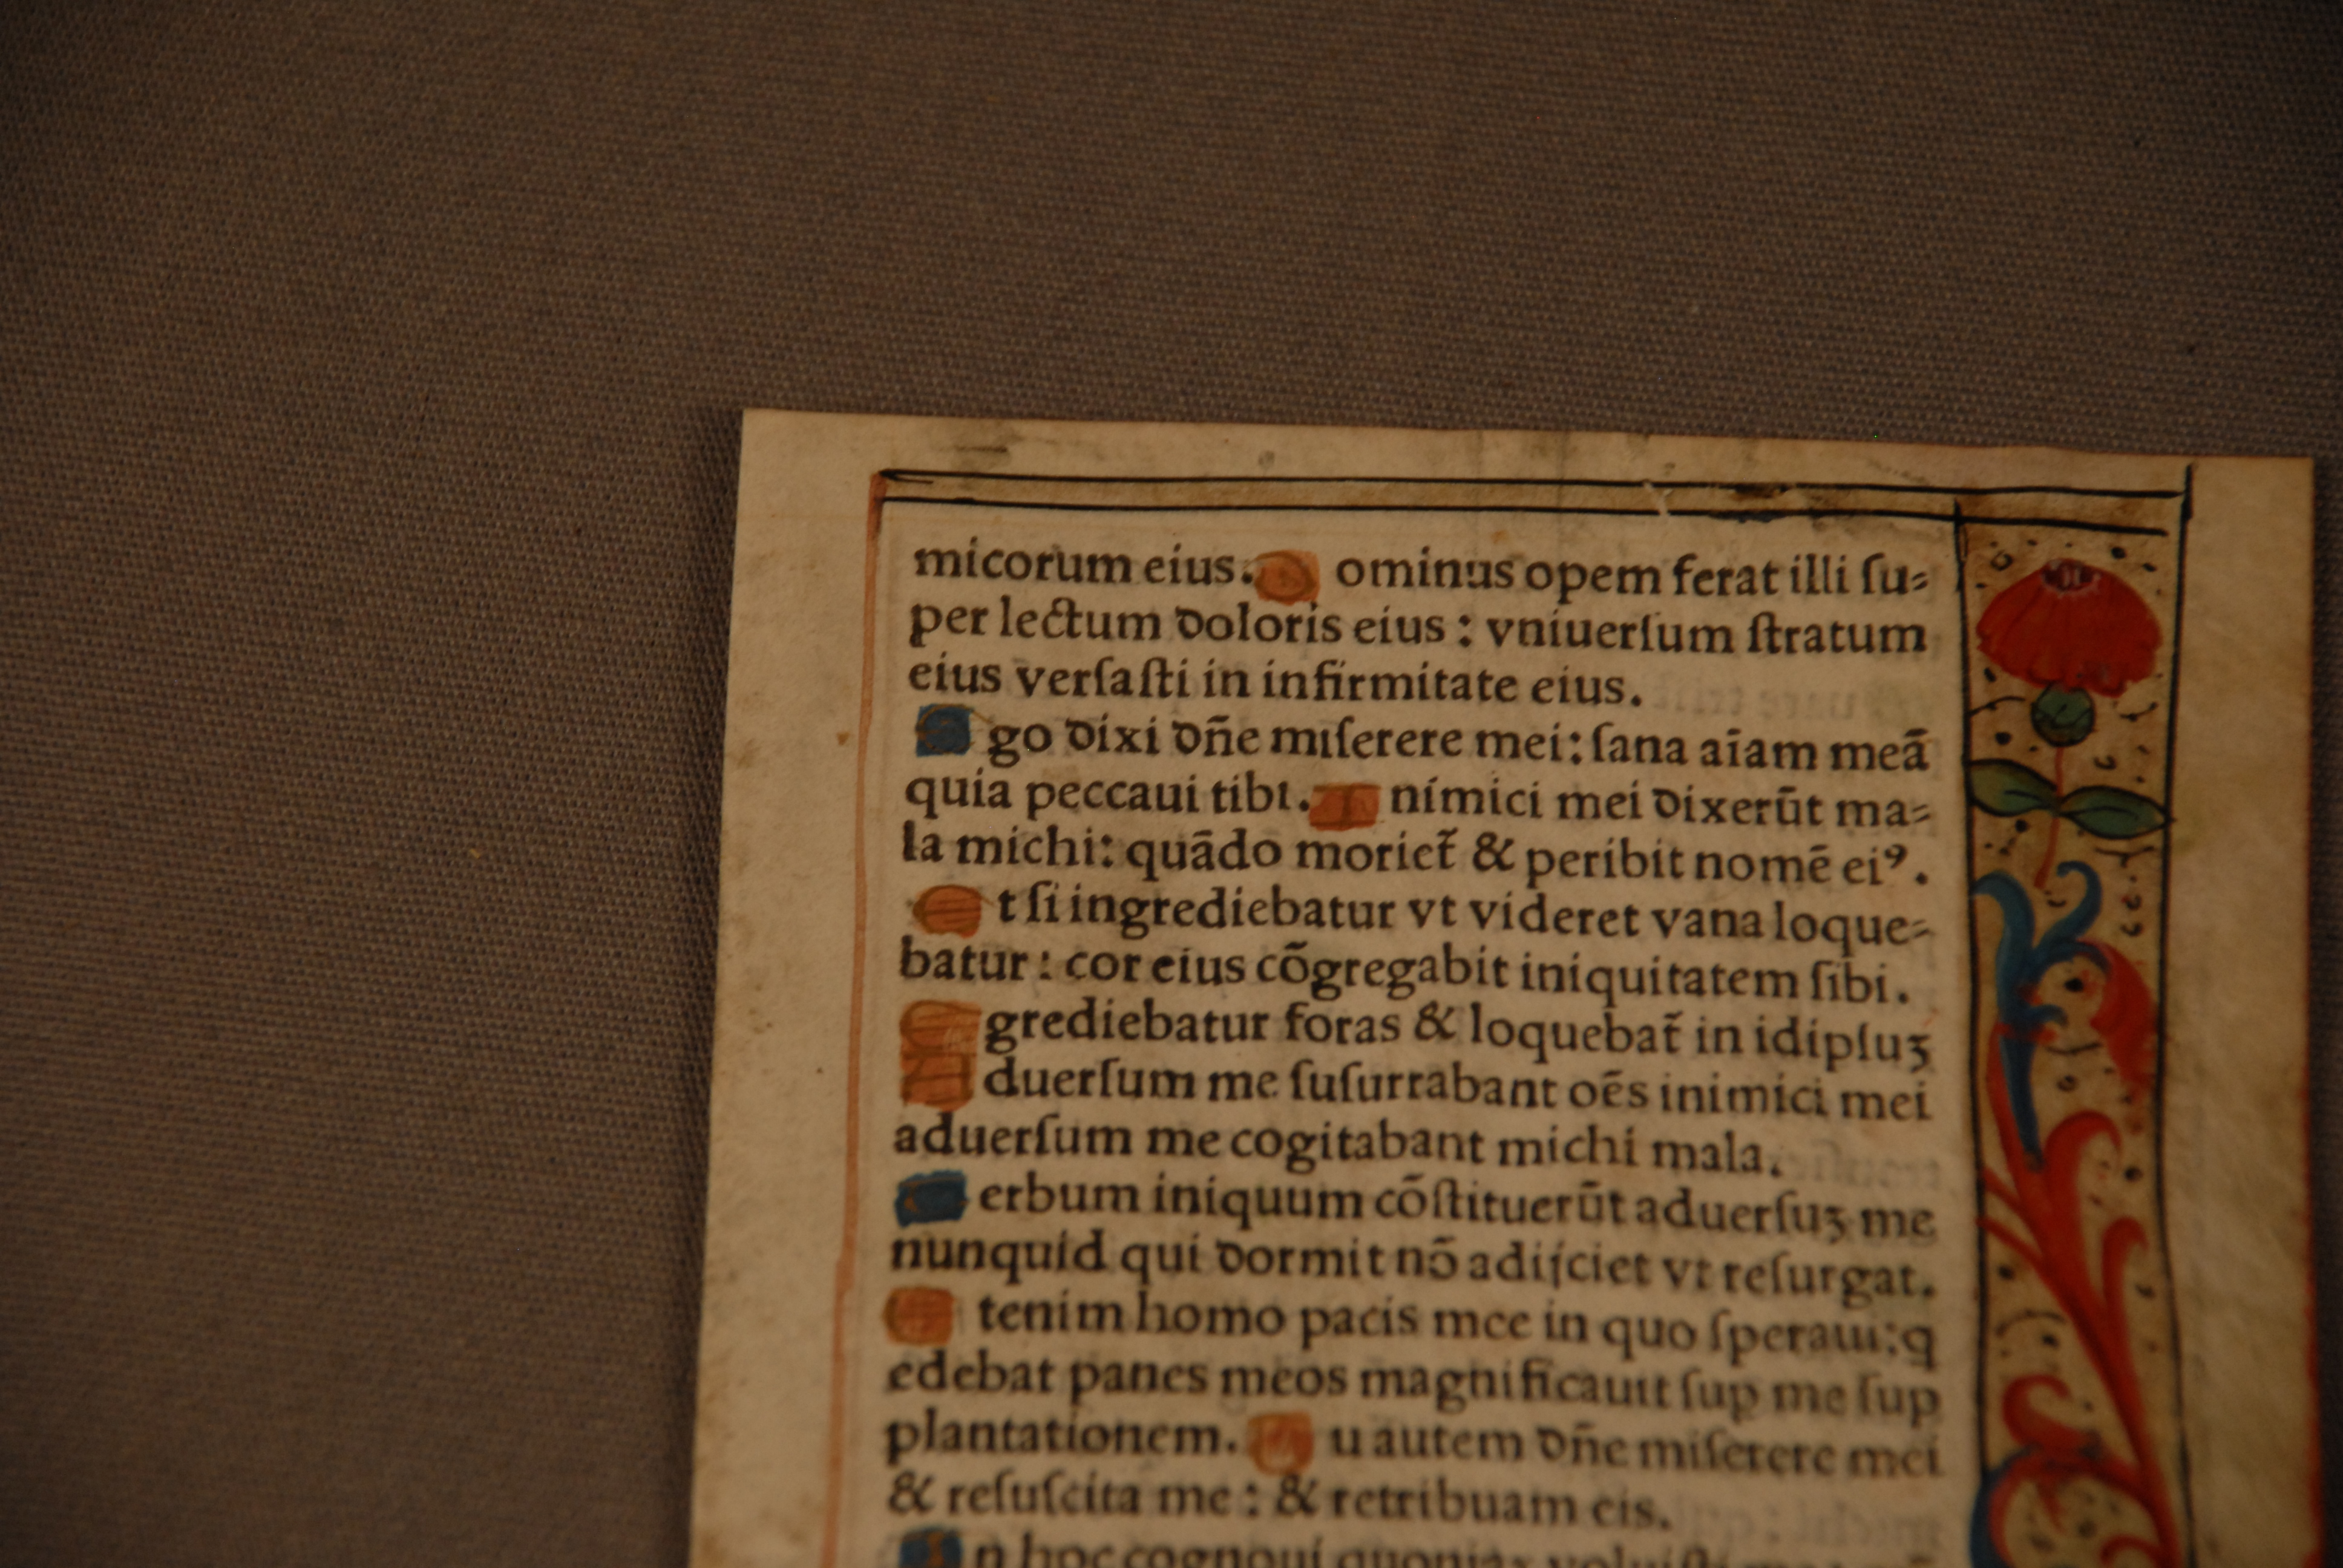 micorum eius. Dominus opem ferat illi ſu⸗
per lectum doloris eius : vniuerſum ſtratum
eius verſaſti in infirmitate eius.
Ego dixi dñe miſerere mei: ſana aīam meā
quia peccaui tibi. Inimici mei dixerūt ma⸗
la michi: quādo moriet̃ & peribit nomē eiꝰ.
Et ſi ingrediebatur vt videret vana loque⸗
batur : cor eius cōgregabit iniquitatem ſibi.
Egrediebatur foras & loquebat̃ in idipſuꝫ
Aduerſum me ſuſurrabant oēs inimici mei
aduerſum me cogitabant michi mala.
Verbum iniquum cōſtituerūt aduerſuꝫ me
nunquid qui dormit nō adijciet vt reſurgat.
Etenim homo pacis mee in quo ſperaui: q
edebat panes meos magnificauit ſup me ſup
plantationem. Tu autem dñe miſerere mei
& reſuſcita me : & retribuam eis.
In hoc cognoui quoniaꝫ voluiſti